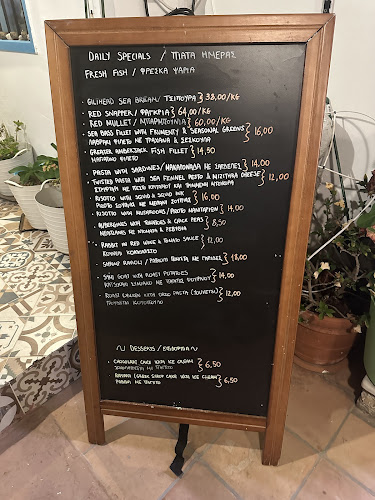 DAILY SPECIALS / ΠΙΑΤΑ ΗΜΕΡΑΣ
FRESH FISH / ΦΡΕΣΚΑ ΨΑΡΙΑ
· GILTHEAD SEA BREAM / ΤΣΙΠΟΥΡΑ } 38,00/KG
RED SNAPPER / ΦΑΓΚΡΙ } 64,00/KG
RED MULLET / ΜΠΑΡΜΠΟΥΝΙΑ } 60,00/KG
· SEA BASS FILLET WITH FRUMENTY & SEASONAL GREENS } 16,00
ΛΑΒΡΑΚΙ ΦΙΛΕΤΟ ΜΕ ΤΡΑΧΑΝΑ &
· GREATER AMBERJACK FISH FILLET } 14,50
ΜΑΓΙΑΤΙΚΟ ΦΙΛΕΤΟ
· PASTA WITH SARDINES / ΜΑΚΑΡΟΝΑΔΑ ΜΕ ΣΑΡΔΕΛΕΣ } 14,00
· TWISTED PASTA WITH SEA FENNEL PESTO & MIZITHRA CHEESE } 12,00
ΜΕ ΠΕΣΤΟ ΚΡΙΤΑΜΟΥ ΚΑΙ
· RISOTTO WITH SQUID & SQUID INK } 16,00
ΡΙΖΟΤΟ ΣΟΥΠΙΑΣ ΜΕ ΜΕΛΑΝΙ ΣΟΥΠΙΑΣ
· RISOTTO WITH MUSHROOMS / ΡΙΖΟΤΟ ΜΑΝΙΤΑΡΙΩΝ } 14,00
· AUBERGINES WITH TOMATOES & CHICK PEAS } 8,50
ΜΕΛΙΤΖΑΝΕΣ ΜΕ ΝΤΟΜΑΤΑ & ΡΕΒΥΘΙΑ
· RABBIT IN RED WINE & TOMATO SAUCE } 12,00
ΚΟΥΝΕΛΙ ΚΟΚΚΙΝΙΣΤΟ
· SHRIMP RAVIOLI / ΡΑΒΙΟΛΙ ΓΕΜΙΣΤΑ ΜΕ ΓΑΡΙΔΕΣ } 18,00
GOAT WITH ROAST POTATOES } 14,00
ΚΑΤΣΙΚΑΚΙ ΜΕ ΠΑΤΑΤΕΣ ΦΟΥΡΝΟΥ
· ROAST CHICKEN WITH ORZO PASTA } 12,00
ΓΙΟΥΒΕΤΣΙ ΚΟΤΟΠΟΥΛΟ
~ DESSERTS / ΕΠΙΔΟΡΠΙΑ ~
· CHOCOLATE CAKE WITH ICE CREAM } 6,50
ΜΕ ΠΑΓΩΤΟ
· RAVANI (GREEK SYRUP CAKE WITH ICE CREAM) } 6,50
ΡΑΒΑΝΙ ΜΕ ΠΑΓΩΤΟ